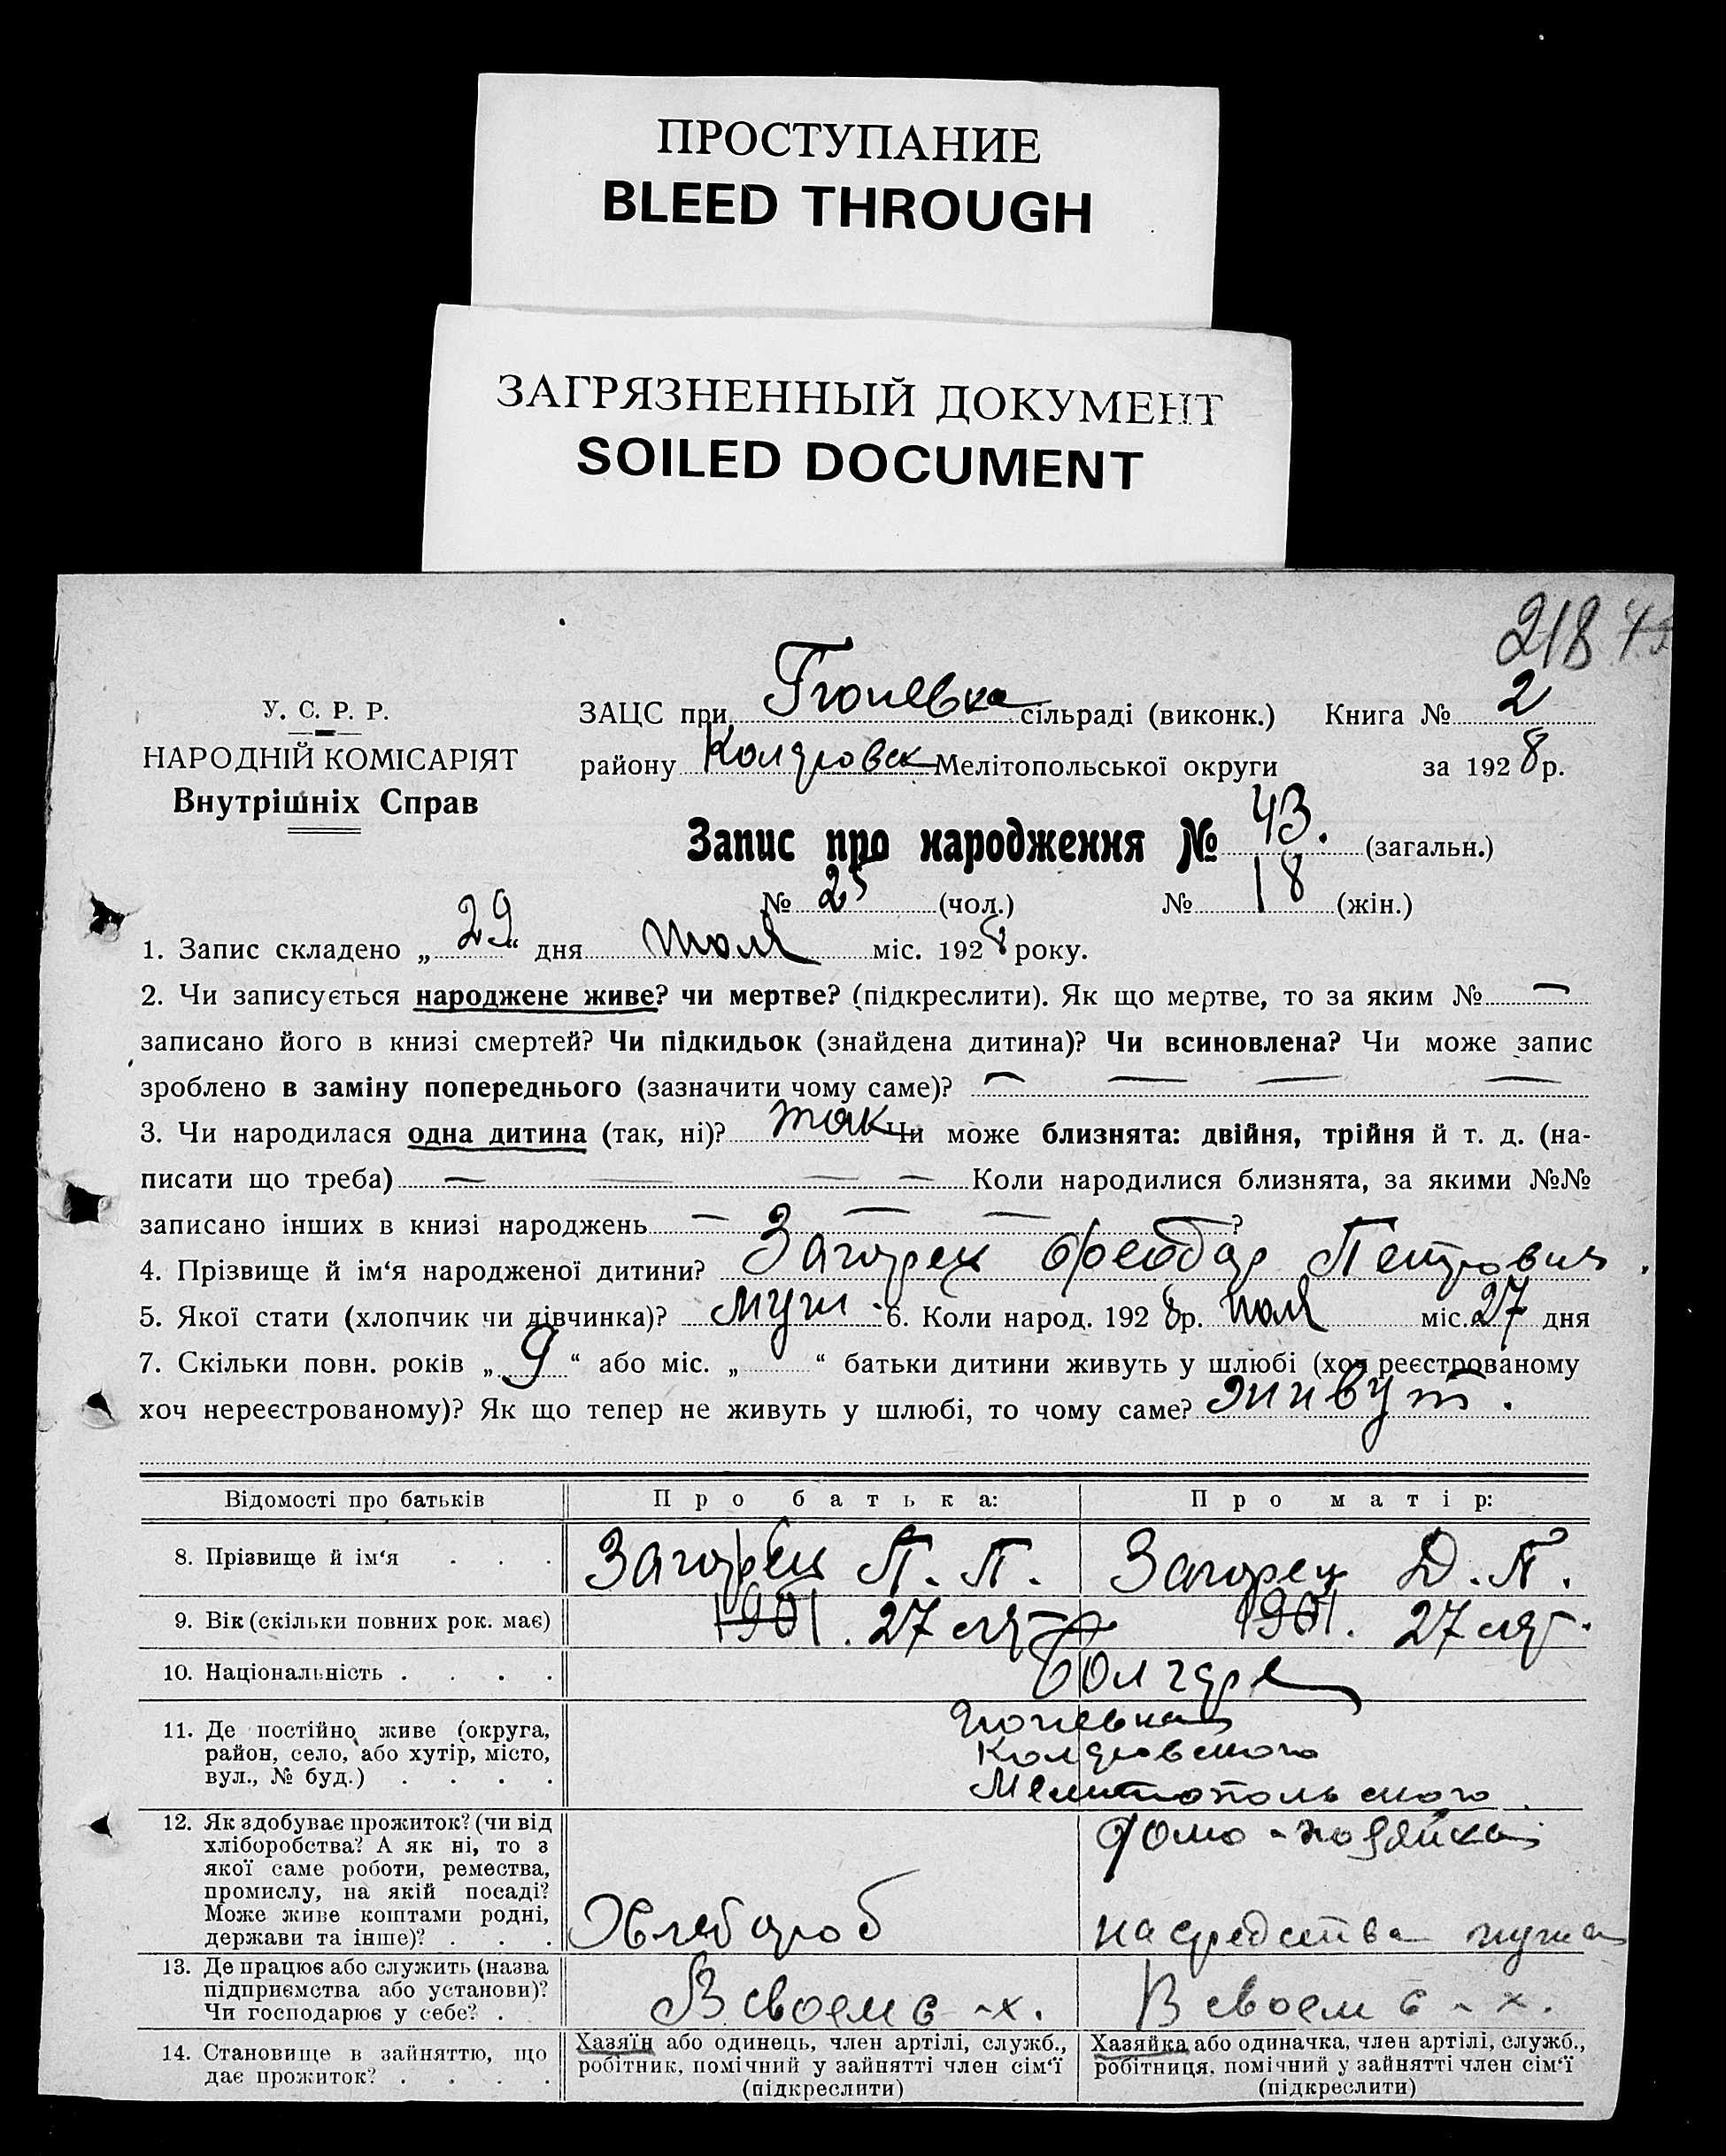 ПРОСТУПАНИЕ
BLEED THROUGH
ЗАГРЯЗНЕННЫЙ ДОКУМЕНТ
SOILED DOCUMENT
218
У. С. Р. Р.
НАРОДНІЙ КОМІСАРІЯТ
Внутрішніх Справ
ЗАЦС при сільраді (виконк.) Книга № 2
району Коларовск Мелітопольської округи за 1928 р.
Запис про народження № 43. (загальн.)
№ 25 (чол.) № 18 (жін.)
1. Запис складено „29“ дня июля міс. 1928 року.
2. Чи записується народжене живе? чи мертве? (підкреслити). Як що мертве, то за яким № —
записано його в книзі смертей? Чи підкидьок (знайдена дитина)? Чи всиновлена? Чи може запис
зроблено в заміну попереднього (зазначити чому саме)? — — — —
3. Чи народилася одна дитина (так, ні)? так Чи може близнята: двійня, трійня й т. д. (на-
писати що треба) — — — — Коли народилися близнята, за якими №№
записано інших в книзі народжень — — — — ?
4. Прізвище й ім‘я народженої дитини? Загорец Феодор Петрович.
5. Якої стати (хлопчик чи дівчинка)? муж. 6. Коли народ. 1928 р. июля міс. 27 дня
7. Скільки повн. років „9“ або міс. „ “ батьки дитини живуть у шлюбі (хоч реєстрованому
хоч нереєстрованому)? Як що тепер не живуть у шлюбі, то чому саме? живут.
Відомості про батьків Про батька: Про матір:
8. Прізвище й ім‘я . . . Загорец П. П. Загорец Д. П.
9. Вік (скільки повних рок. має) 1901. 27 лет 1901. 27 лет.
10. Національність . . . . Болгаре
11. Де постійно живе (округа,
район, село, або хутір, місто,
вул., № буд.) . . . .
Коларовского
Мелитопольского
12. Як здобуває прожиток? (чи від
хліборобства? А як ні, то з
якої саме роботи, ремества,
промислу, на якій посаді?
Може живе коштами родні,
держави та інше)? . . .
Хлебороб
Домо-хозяйка
на средства мужа
13. Де працює або служить (назва
підприємства або установи)?
Чи господарює у себе? .
В своем с-х. В своем с-х.
14. Становище в зайняттю, що
дає прожиток? . . . .
Хазяїн або одинець, член артілі, служб.,
робітник, помічний у зайнятті член сім‘ї
(підкреслити)
Хазяйка або одиначка, член артілі, служб.,
робітниця, помічний у зайнятті член сім‘ї
(підкреслити)